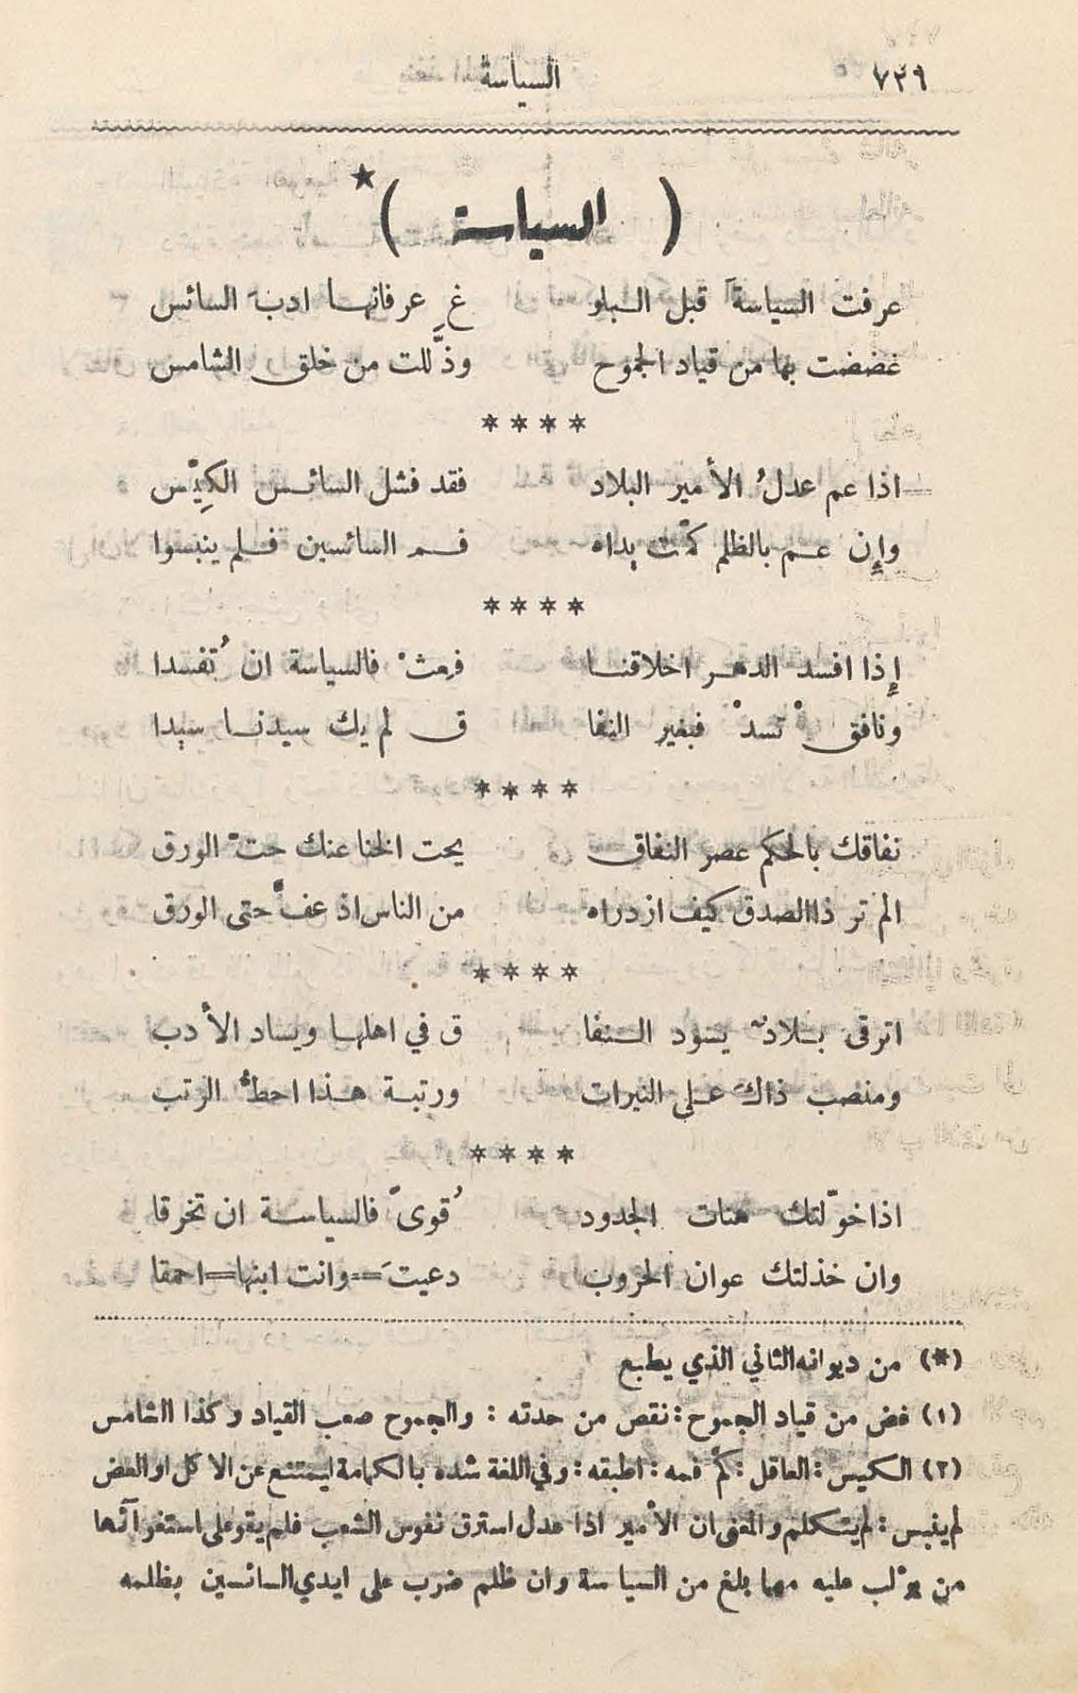 ٧٢٩ السياسة
( السياسة )*
عرفت السياسةَ قبل البلو غِ عرفانها ادبَ السائس
غضضت بها من قياد الجموح وذلَّلت من خلق الشامس
****
اذا عم عدلُ الأمير البلاد فقد فشل السائس الكيِّس
وإِن عم بالظلم كمّت يداه فم السائسين فلم ينبسوا
****
إِذا افسد الدهر اخلاقنا فعِثْ فالسياسة ان تُفسدا
ونافقْ تسدْ فبغير النفا ق لم يك سيدنا سيدا
****
نفاقك بالحكم عصر النفاق يحت الخنا عنك حتَّ الورق
الم تر ذاالصدق كيف ازدراه من الناس اذ عفَّ حتى الورق
****
اترقى بلادٌ يسود النفا ق في اهلها ويساد الأدب
ومنصب ذاكَ على النيرات ورتبة هذا احطُّ الرتب
****
اذا خوّلتك هنات الجدود قُوىً فالسياسة ان تخرقا
وان خذلتك عوان الحروب دعيتَ=وانت ابنها=احمقا
(*) من ديوانه الثاني الذي يطبع
(١) غض من قياد الجموح: نقص من حدته : والجموح صعب القياد وكذا الشامس
(٢) الكيس: العاقل: كمَّ فمه: اطبقه: وفي اللغة شده بالكمامة ليمتنع عن الاكل او العض
لم ينبس: لم يتكلم والمعنى ان الأمير اذا عدل استرق نفوس الشعب فلم يقو على استغوآئها
من يؤلب عليه مهما بلغ من السياسة وان ظلم ضرب على ايدي السائسين بظلمه